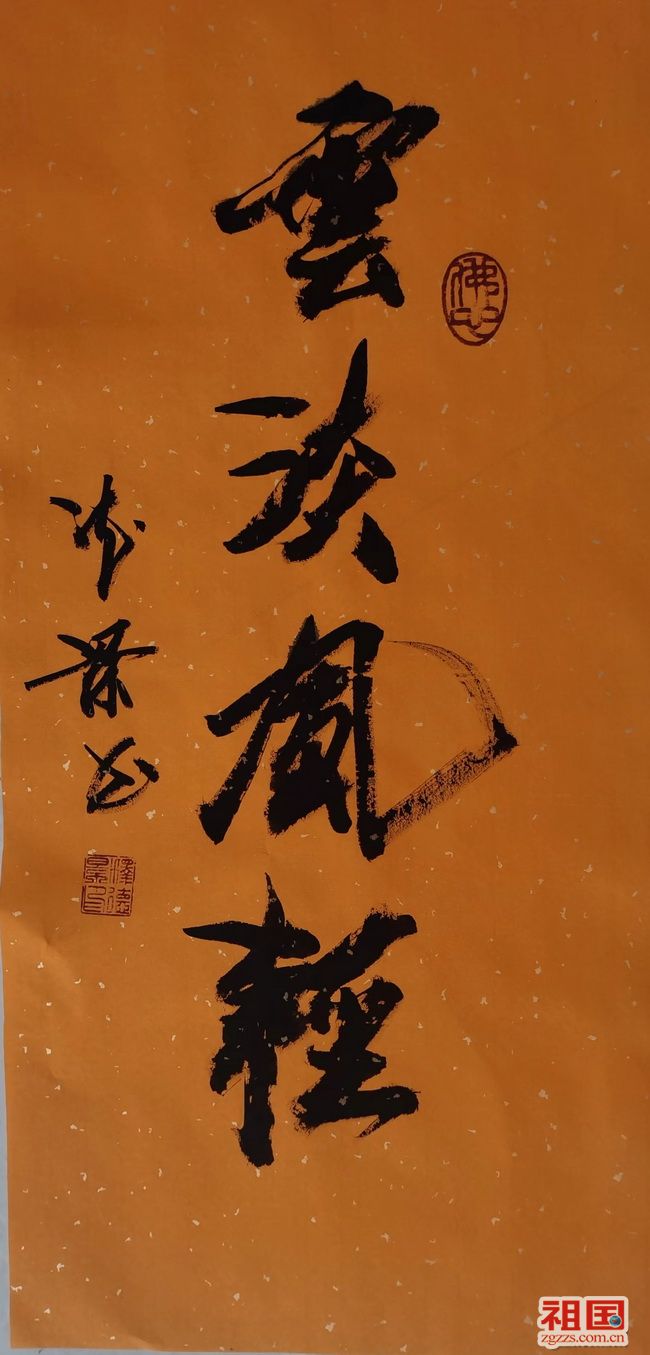 雲淡風輕
佛心
景书
祖国
zgzzs.com.cn